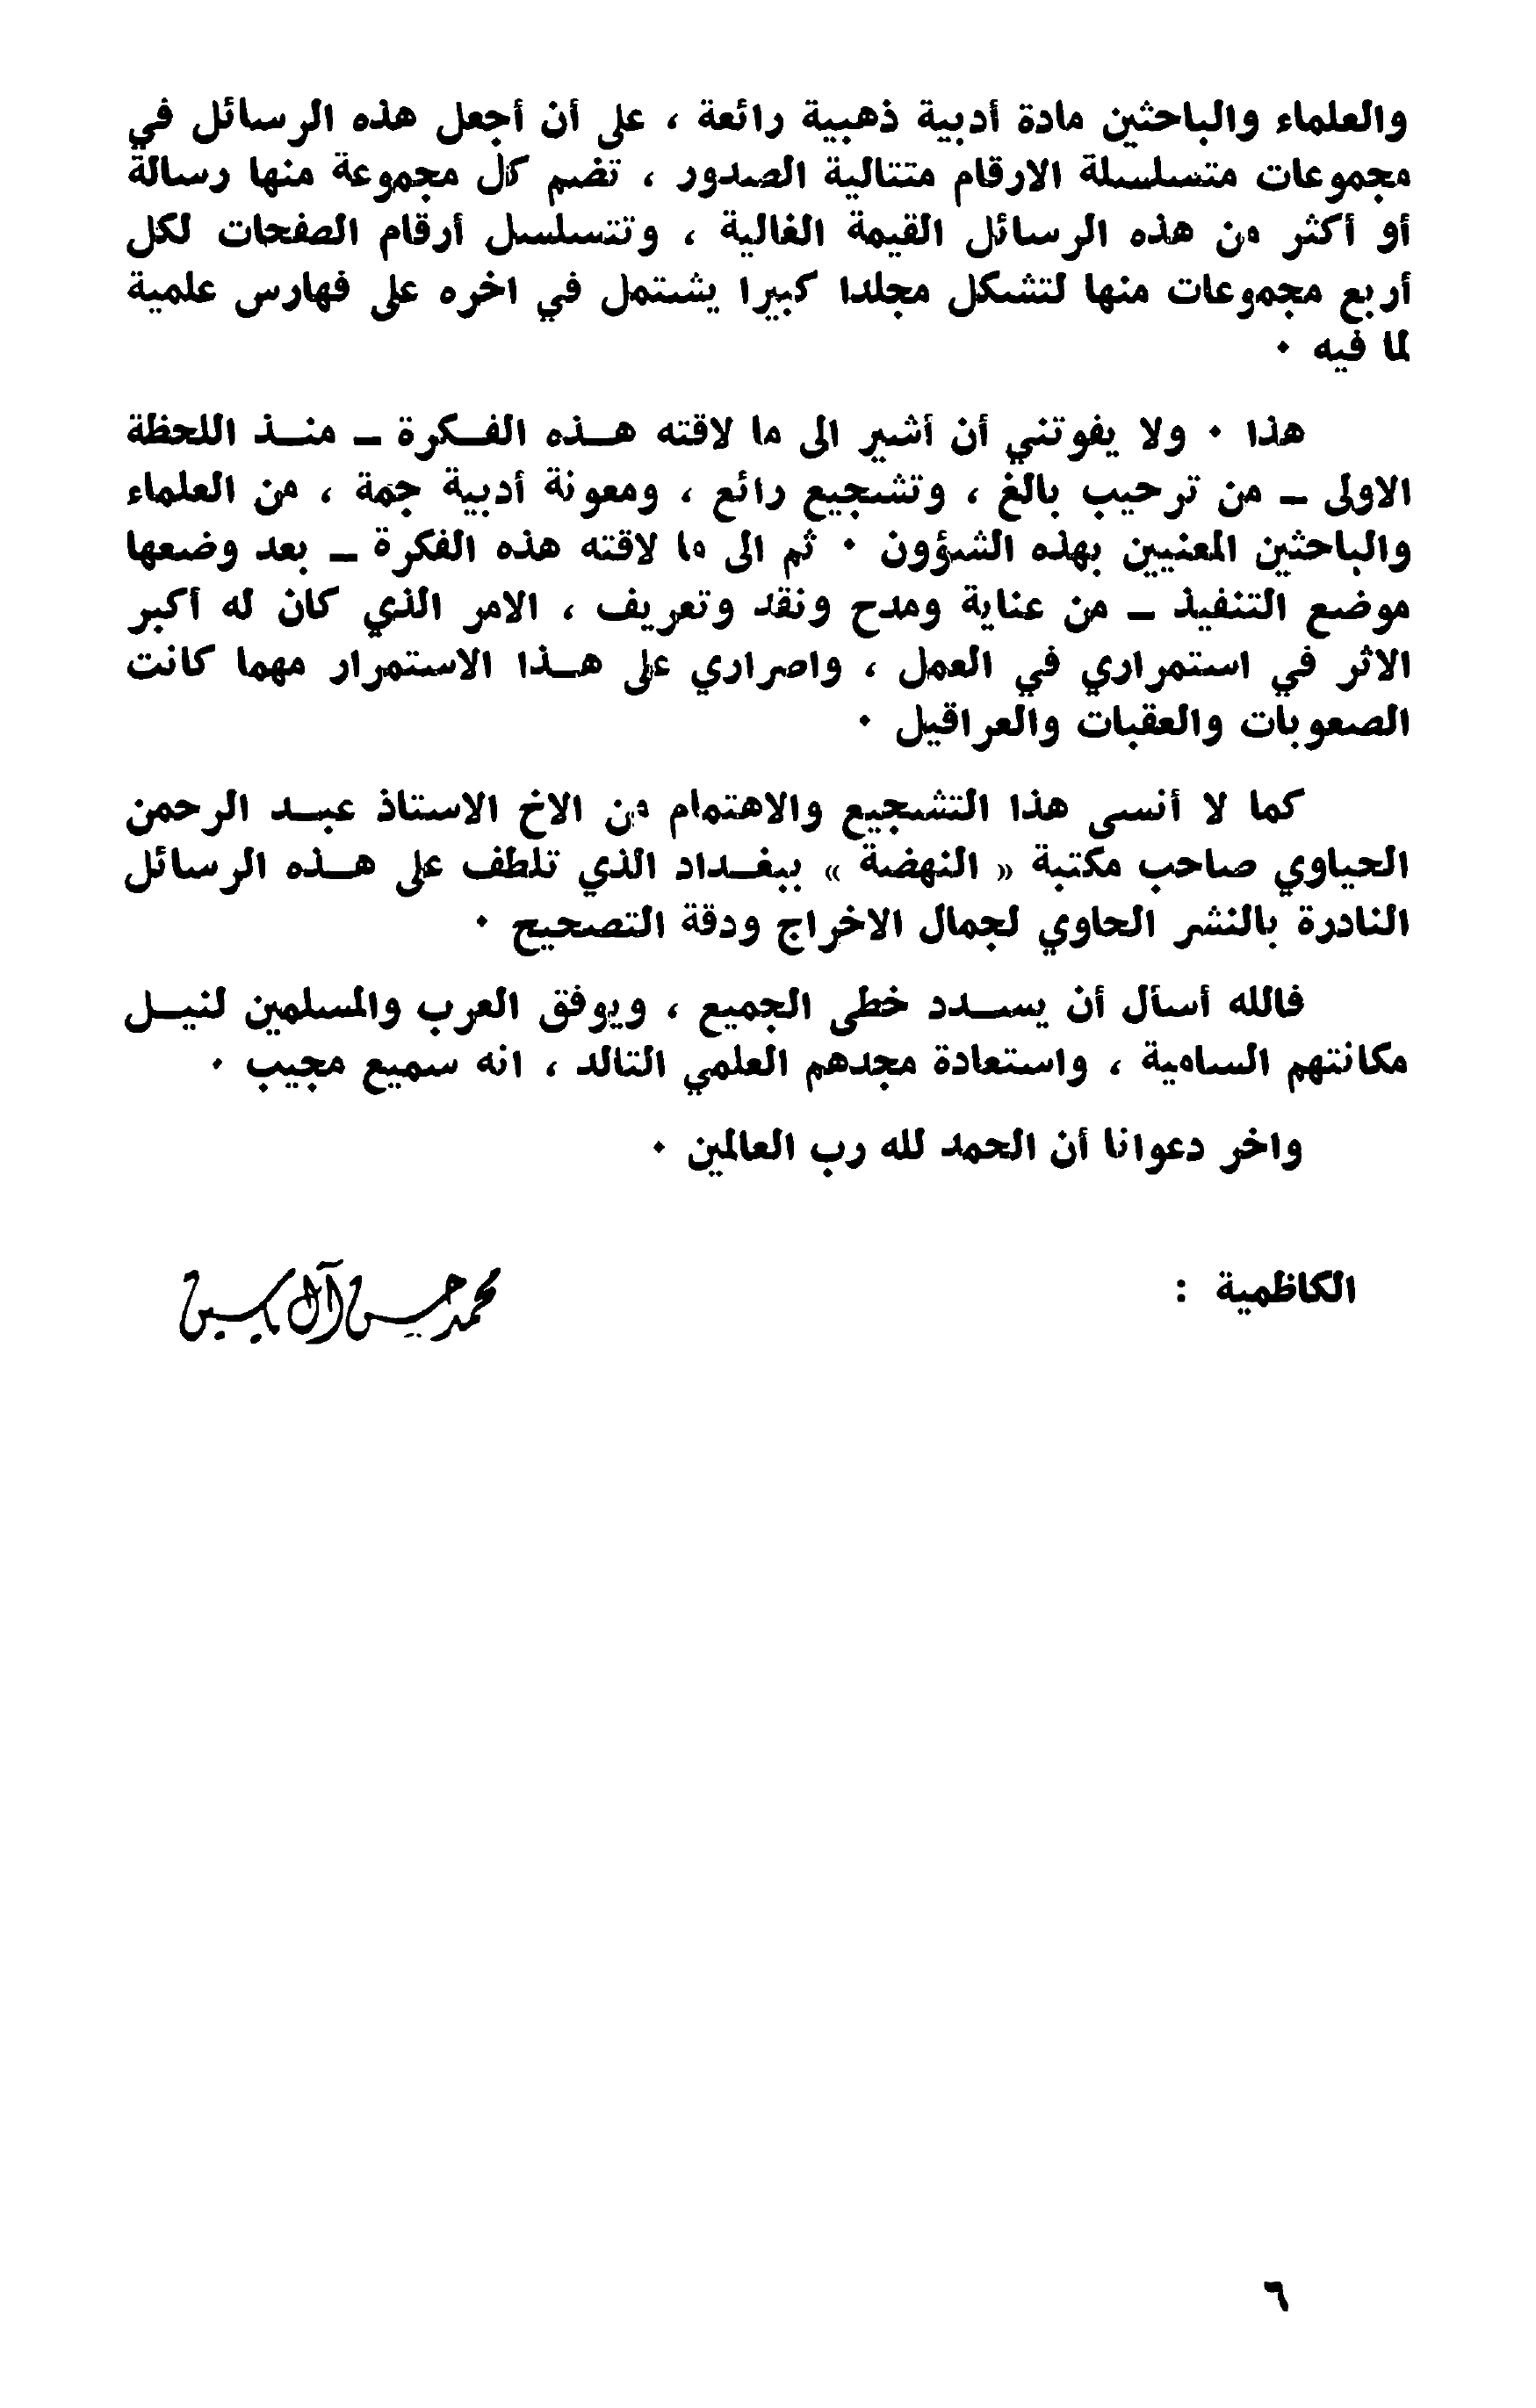 والعلماء والباحثين مادة أدبية ذهبية رائعة ، على أن أجعل هذه الرسائل في
مجموعات متسلسلة الارقام متتالية الصدور ، تضم كل مجموعة منها رسالة
أو أكثر من هذه الرسائل القيمة الغالية ، وتتسلسل أرقام الصفحات لكل
أربع مجموعات منها لتشكل مجلدا كبيرا يشتمل في اخره على فهارس علمية
لما فيه ٠
هذا ٠ ولا يفوتني أن أشير الى ما لاقته هـذه الفـكرة ـ منـذ اللحظة
الاولى ـ من ترحيب بالغ ، وتشجيع رائع ، ومعونة أدبية جمة ، من العلماء
والباحثين المعنيين بهذه الشؤون ٠ ثم الى ما لاقته هذه الفكرة ـ بعد وضعها
موضع التنفيذ ـ من عناية ومدح ونقد وتعريف ، الامر الذي كان له أكبر
الاثر في استمراري في العمل ، واصراري على هـذا الاستمرار مهما كانت
الصعوبات والعقبات والعراقيل ٠
كما لا أنسى هذا التشجيع والاهتمام من الاخ الاستاذ عبـد الرحمن
الحياوي صاحب مكتبة « النهضة » ببغـداد الذي تلطف على هـذه الرسائل
النادرة بالنشر الحاوي لجمال الاخراج ودقة التصحيح ٠
فالله أسأل أن يسـدد خطى الجميع ، ويوفق العرب والمسلمين لنيـل
مكانتهم السامية ، واستعادة مجدهم العلمي التالد ، انه سميع مجيب ٠
واخر دعوانا أن الحمد لله رب العالمين ٠
الكاظمية :
محمد حسن آل ياسين
٦